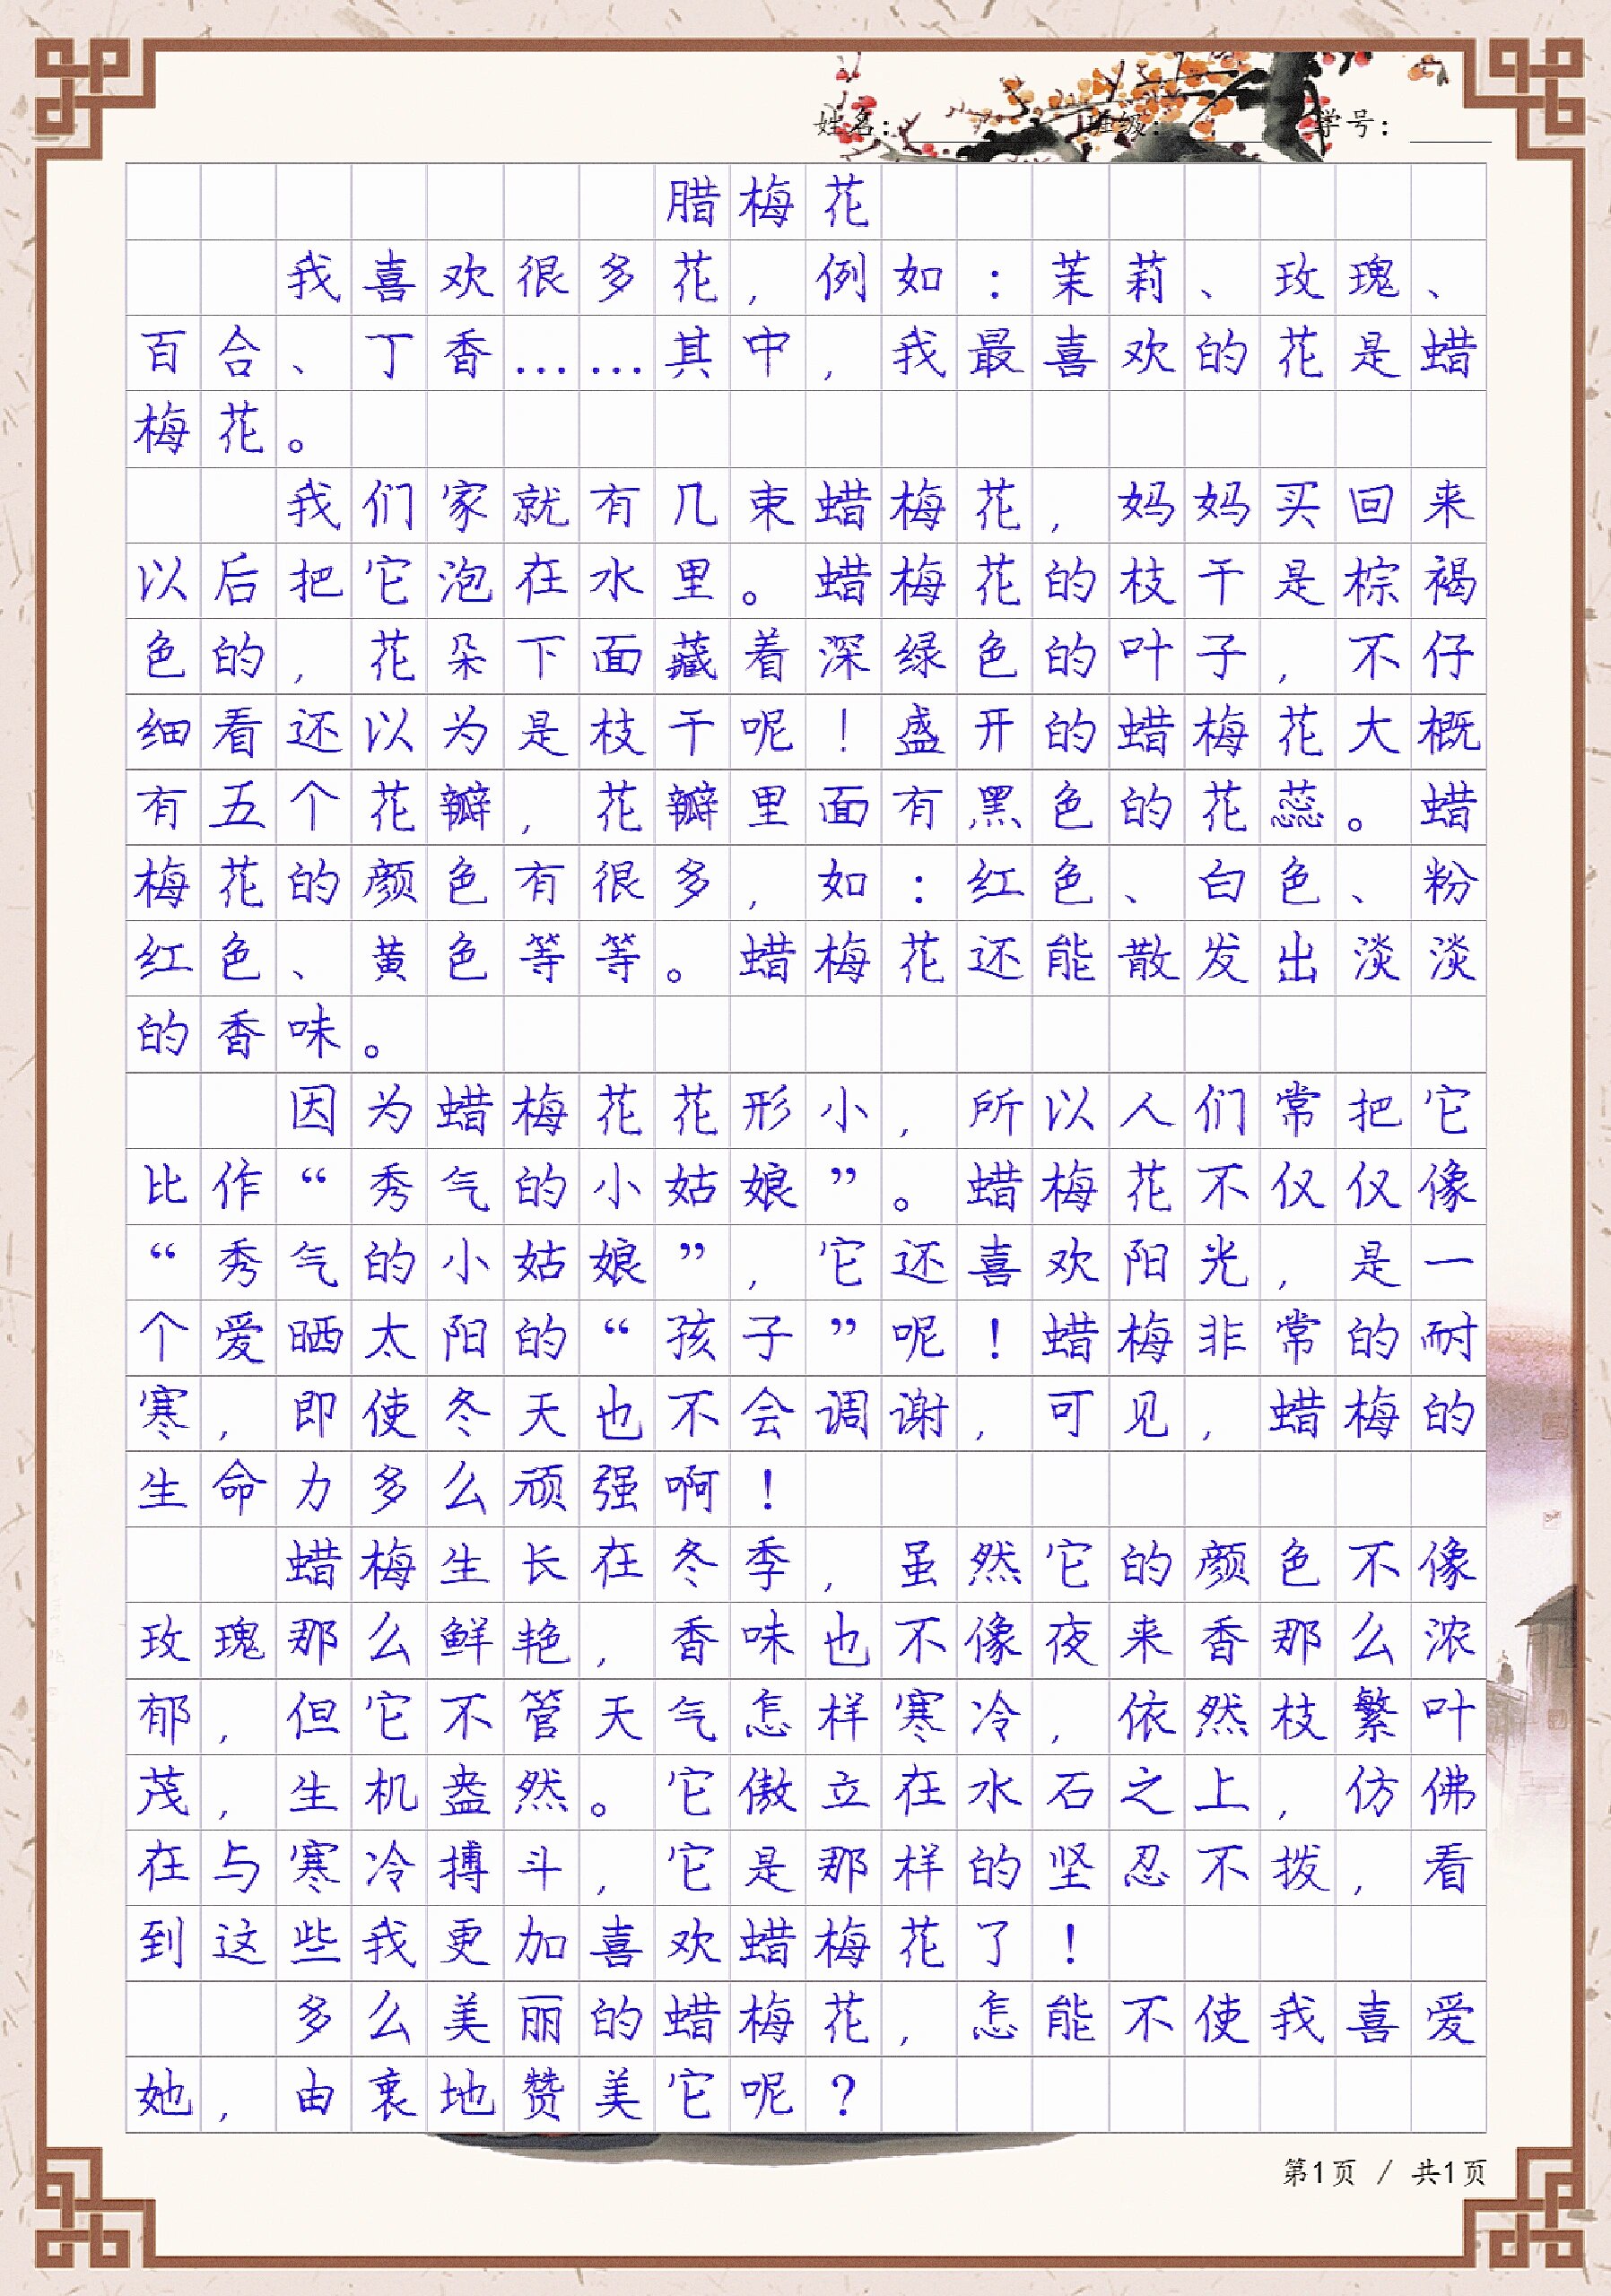 姓名： 班级： 学号：
腊梅花
我喜欢很多花，例如：茉莉、玫瑰、
百合、丁香……其中，我最喜欢的花是蜡
梅花。
我们家就有几束蜡梅花，妈妈买回来
以后把它泡在水里。蜡梅花的枝干是棕褐
色的，花朵下面藏着深绿色的叶子，不仔
细看还以为是枝干呢！盛开的蜡梅花大概
有五个花瓣，花瓣里面有黑色的花蕊。蜡
梅花的颜色有很多，如：红色、白色、粉
红色、黄色等等。蜡梅花还能散发出淡淡
的香味。
因为蜡梅花花形小，所以人们常把它
比作“秀气的小姑娘”。蜡梅花不仅仅像
“秀气的小姑娘”，它还喜欢阳光，是一
个爱晒太阳的“孩子”呢！蜡梅非常的耐
寒，即使冬天也不会调谢，可见，蜡梅的
生命力多么顽强啊！
蜡梅生长在冬季，虽然它的颜色不像
玫瑰那么鲜艳，香味也不像夜来香那么浓
郁，但它不管天气怎样寒冷，依然枝繁叶
茂，生机盎然。它傲立在水石之上，仿佛
在与寒冷搏斗，它是那样的坚忍不拨，看
到这些我更加喜欢蜡梅花了！
多么美丽的蜡梅花，怎能不使我喜爱
她，由衷地赞美它呢？
第1页 / 共1页